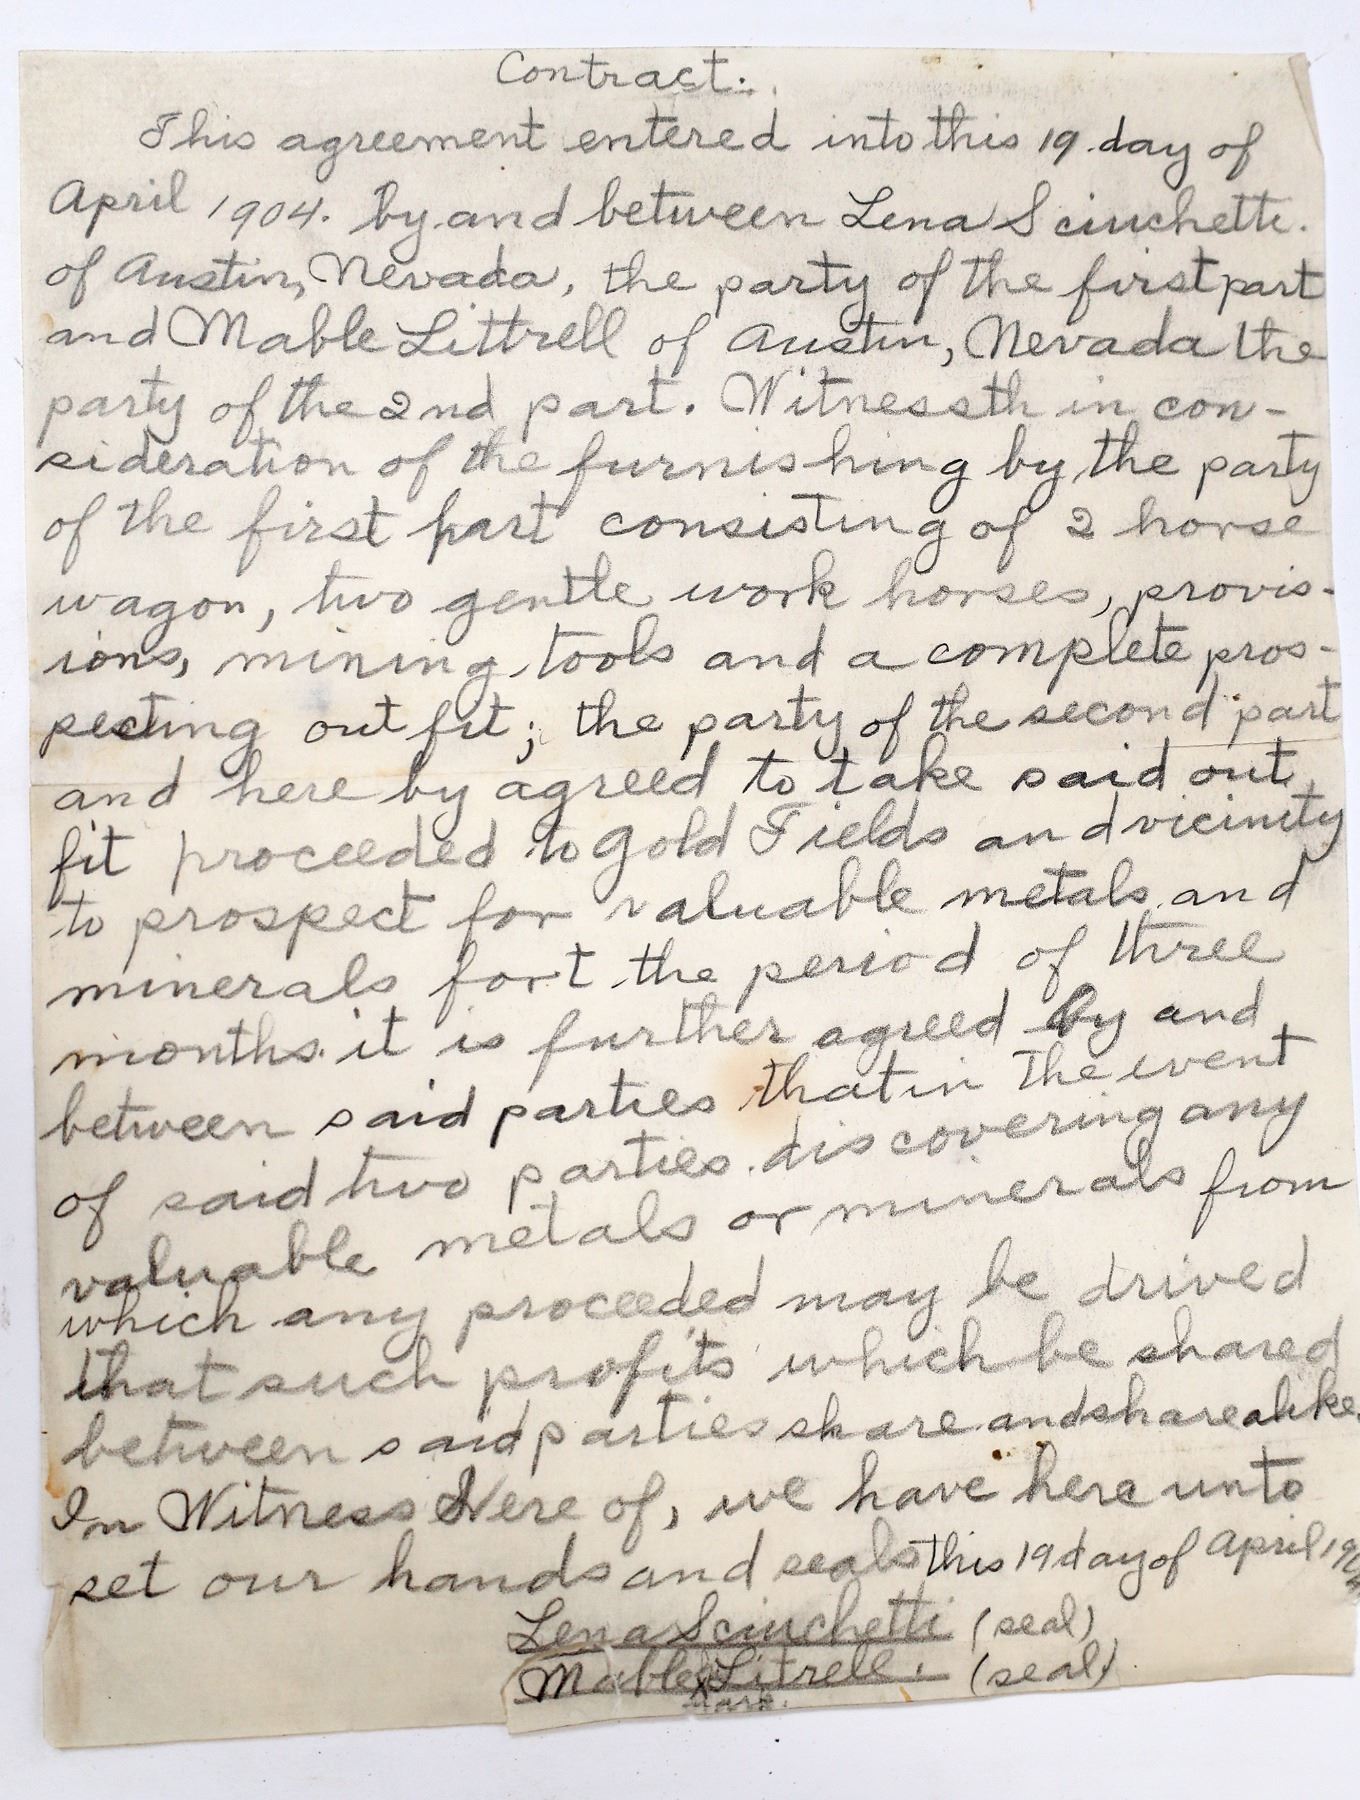 Contract:
This agreement entered into this 19 day of
April 1904. by and between Lena Sciuchetti.
of Austin, Nevada, the party of the first part
and Mable Littrell of Austin, Nevada the
party of the 2nd part. Witnessth in con-
sideration of the furnishing by the party
of the first part consisting of 2 horse
wagon, two gentle work horses, provis-
ions, mining tools and a complete pros-
pecting out fit; the party of the second part
and here by agreed to take said out
fit proceeded to Gold Fields and vicinity
to prospect for valuable metals and
minerals fort the period of three
months. it is further agreed by and
between said parties that in the event
of said two parties discovering any
valuable metals or minerals from
which any proceeded may be drived
that such profits which be shared
between said parties share and share alike.
In Witness Were of, we have here unto
set our hands and seals this 19 day of April 1904
Lena Sciuchetti (seal)
Mable Litrell. (seal)